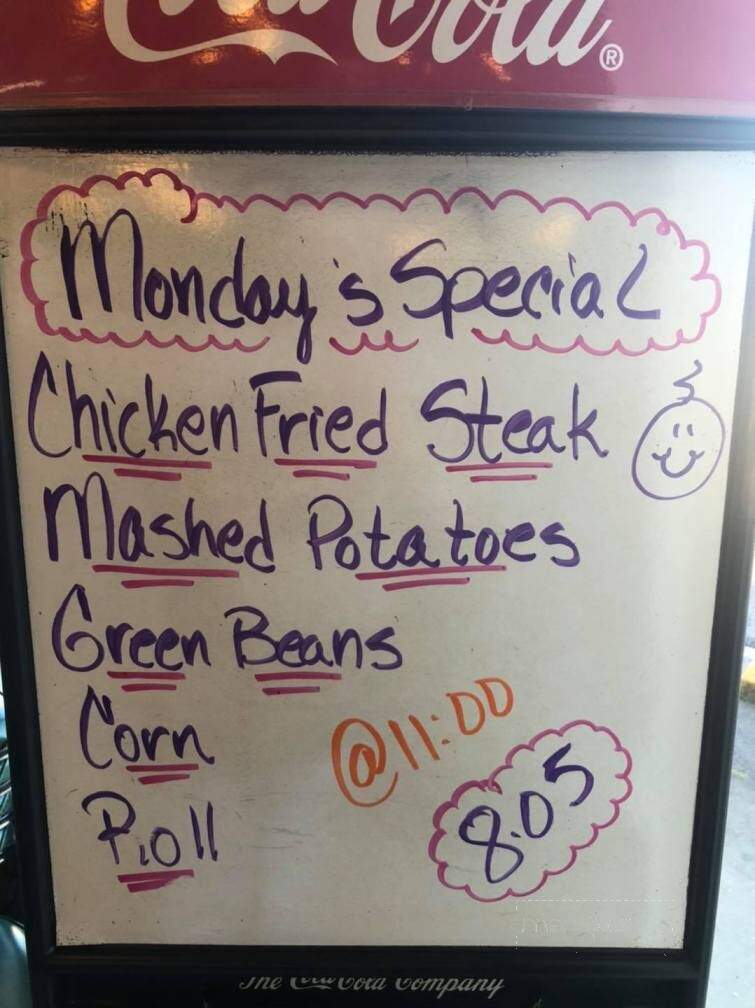 Coca-Cola®
Monday's Special
Chicken Fried Steak
Mashed Potatoes
Green Beans
Corn
@11:00
Roll
8.05
The Coca-Cola Company